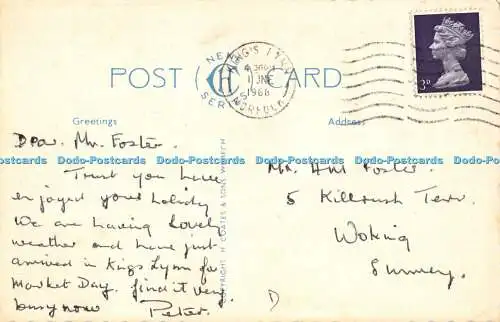 POST CARD
NEW
CH
SERIES
KING'S LYNN
1 JNE
1968
NORFOLK
3D
Greetings
Address
Dear Mr. Foster.
Dodo-Postcards Dodo-Postcards Dodo-Postcards Dodo-Postcards Dodo-Postcards
Trust you have
enjoyed your holiday
We are having lovely
weather and have just
arrived in Kings Lynn for
Market Day. find it very
busy now Peter.
COPYRIGHT H. COATES & SONS, WISBECH
Mr. H M Foster.
5 Killrush Terr.
Woking
Surrey.
D